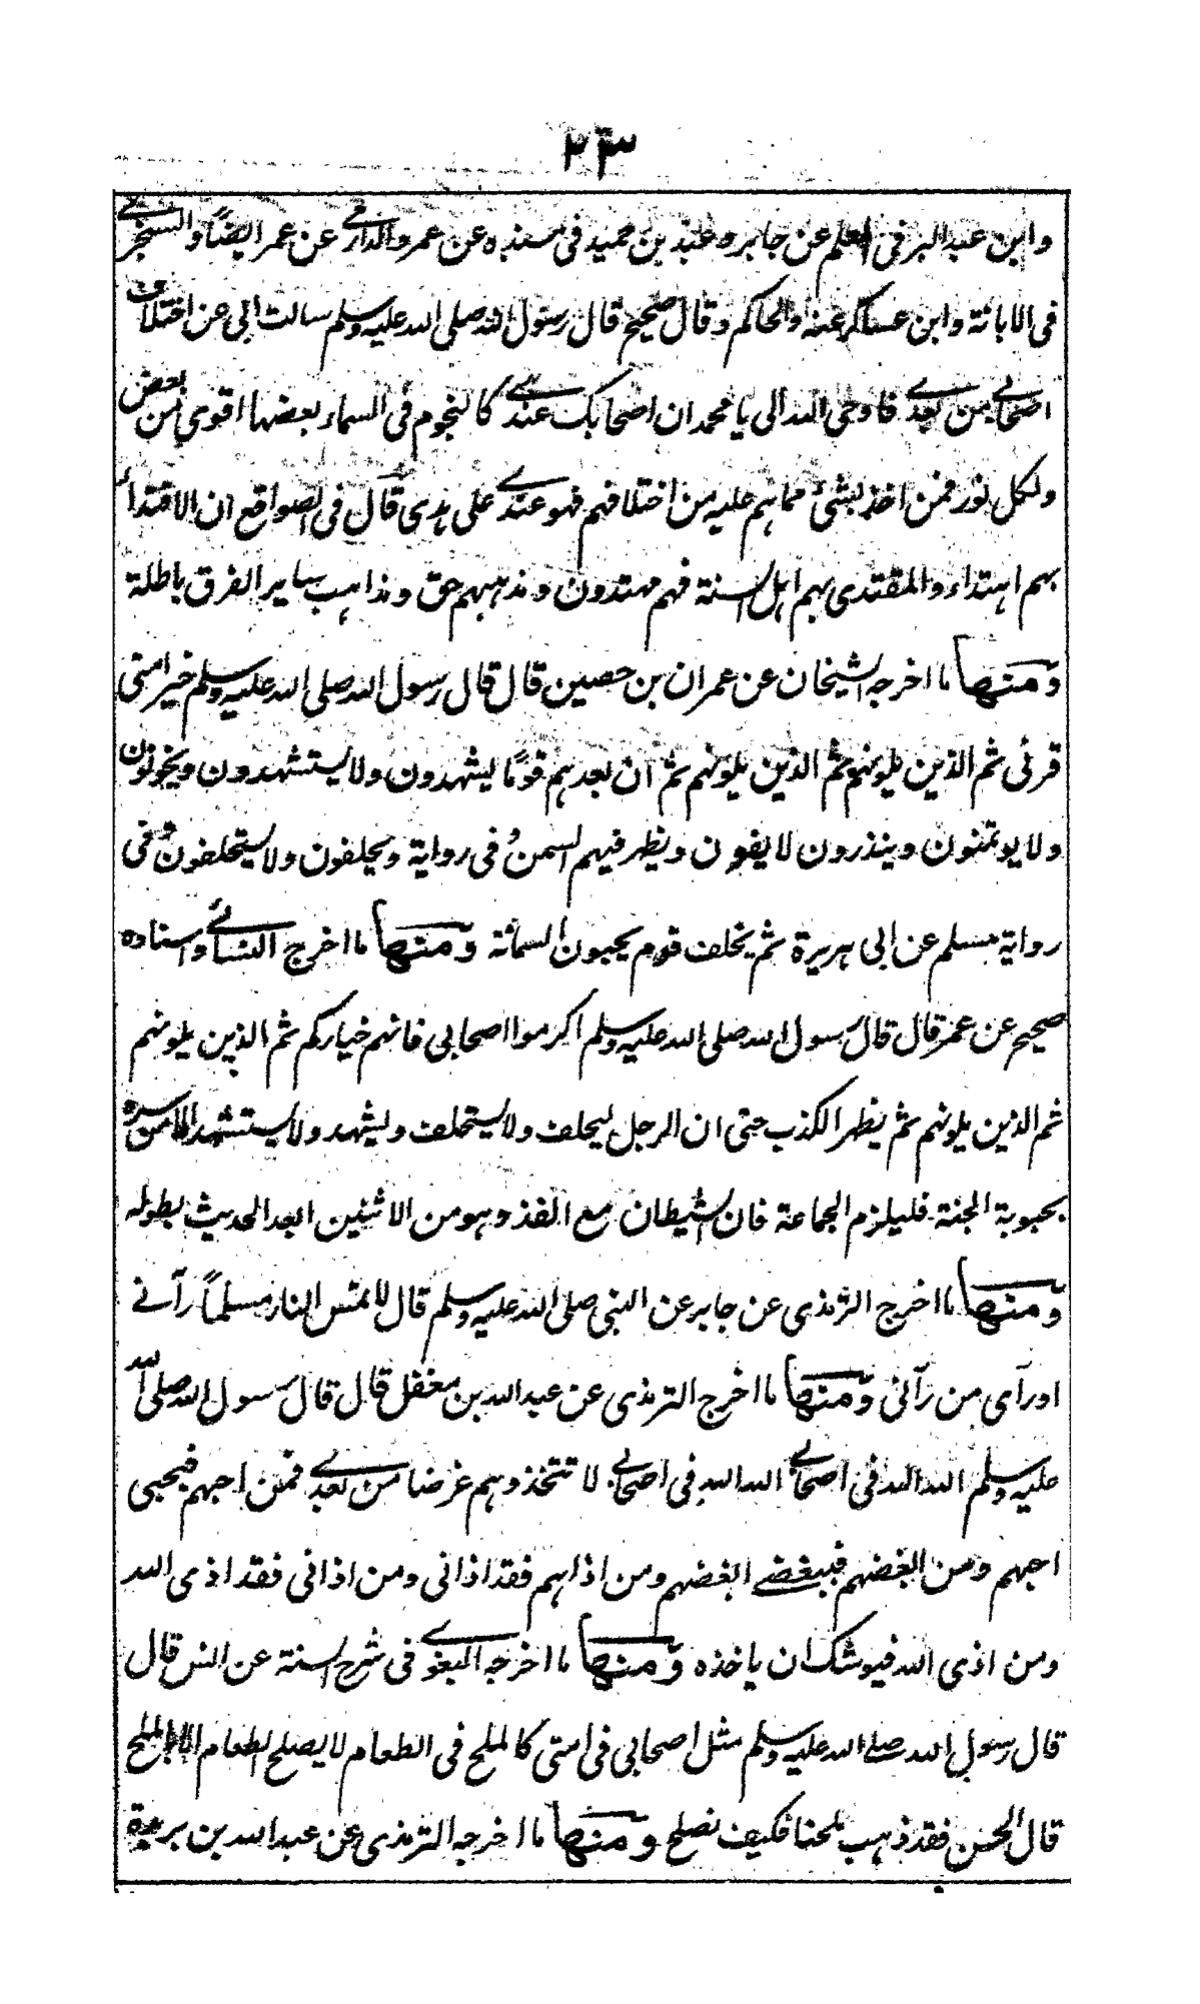 ٢٣
وابن عبد البر فى العلم عن جابر وعبد بن حميد فى مسنده عن عمر والدارمي عن عمر ايضاً والسنجري
فى الابانة وابن عساكر عنه والحاكم وقال صحيح قال رسول الله صلى الله عليه وسلم سالت ربى عن اختلاف
اصحابي من بعدي فاوحى الله الى يا محمد ان اصحابك عندي كالنجوم فى السماء بعضها اقوى من بعض
ولكل نور فمن اخذ بشئ مما هم عليه من اختلافهم فهو عندي على هدى قال فى الصواقع ان الاقتداء
بهم اهتداء والمقتدى بهم اهل السنة فهم مهتدون ومذهبهم حق ومذاهب ساير الفرق باطلة
ومنها ما اخرجه الشيخان عن عمران بن حصين قال قال رسول الله صلى الله عليه وسلم خير امتى
قرنى ثم الذين يلونهم ثم الذين يلونهم ثم ان بعدهم قومًا يشهدون ولا يستشهدون ويخونون
ولا يوتمنون وينذرون لا يفون ويظهر فيهم السمن وفى رواية ويحلفون ولا يستحلفون وفى
رواية مسلم عن ابى هريرة ثم يخلف قوم يحبون السمانة ومنها ما اخرج النسائي واسناده
صحيح عن عمر قال قال رسول الله صلى الله عليه وسلم اكرموا اصحابى فانهم خياركم ثم الذين يلونهم
ثم الذين يلونهم ثم يظهر الكذب حتى ان الرجل ليحلف ولا يستحلف ويشهد ولا يستشهد الا من سره
بحبوبة الجنة فليلزم الجماعة فان الشيطان مع الفذ وهو من الاثنين ابعد الحديث بطوله
ومنها ما اخرج الترمذى عن جابر عن النبى صلى الله عليه وسلم قال لا تمس النار مسلماً رآنے
اورآى من رآنى ومنها ما اخرج الترمذى عن عبد الله بن مغفل قال قال رسول الله صلى الله
عليه وسلم الله الله فى اصحابي الله الله فى اصحابي لا تتخذوهم غرضا من بعدي فمن احبهم فبحبى
احبهم ومن ابغضهم فببغضے ابغضهم ومن اذاهم فقد اذانى ومن اذانى فقد اذى الله
ومن اذى الله فيوشك ان ياخذه ومنها ما اخرجه البغوي فى شرح السنة عن انس قال
قال رسول الله صلے الله عليه وسلم مثل اصحابى فى امتى كالملح فى الطعام لا يصلح الطعام الا بالملح
قال الحسن فقد ذهب ملحنا فكيف نصلح ومنها ما اخرجه الترمذى عن عبد الله بن بريدة